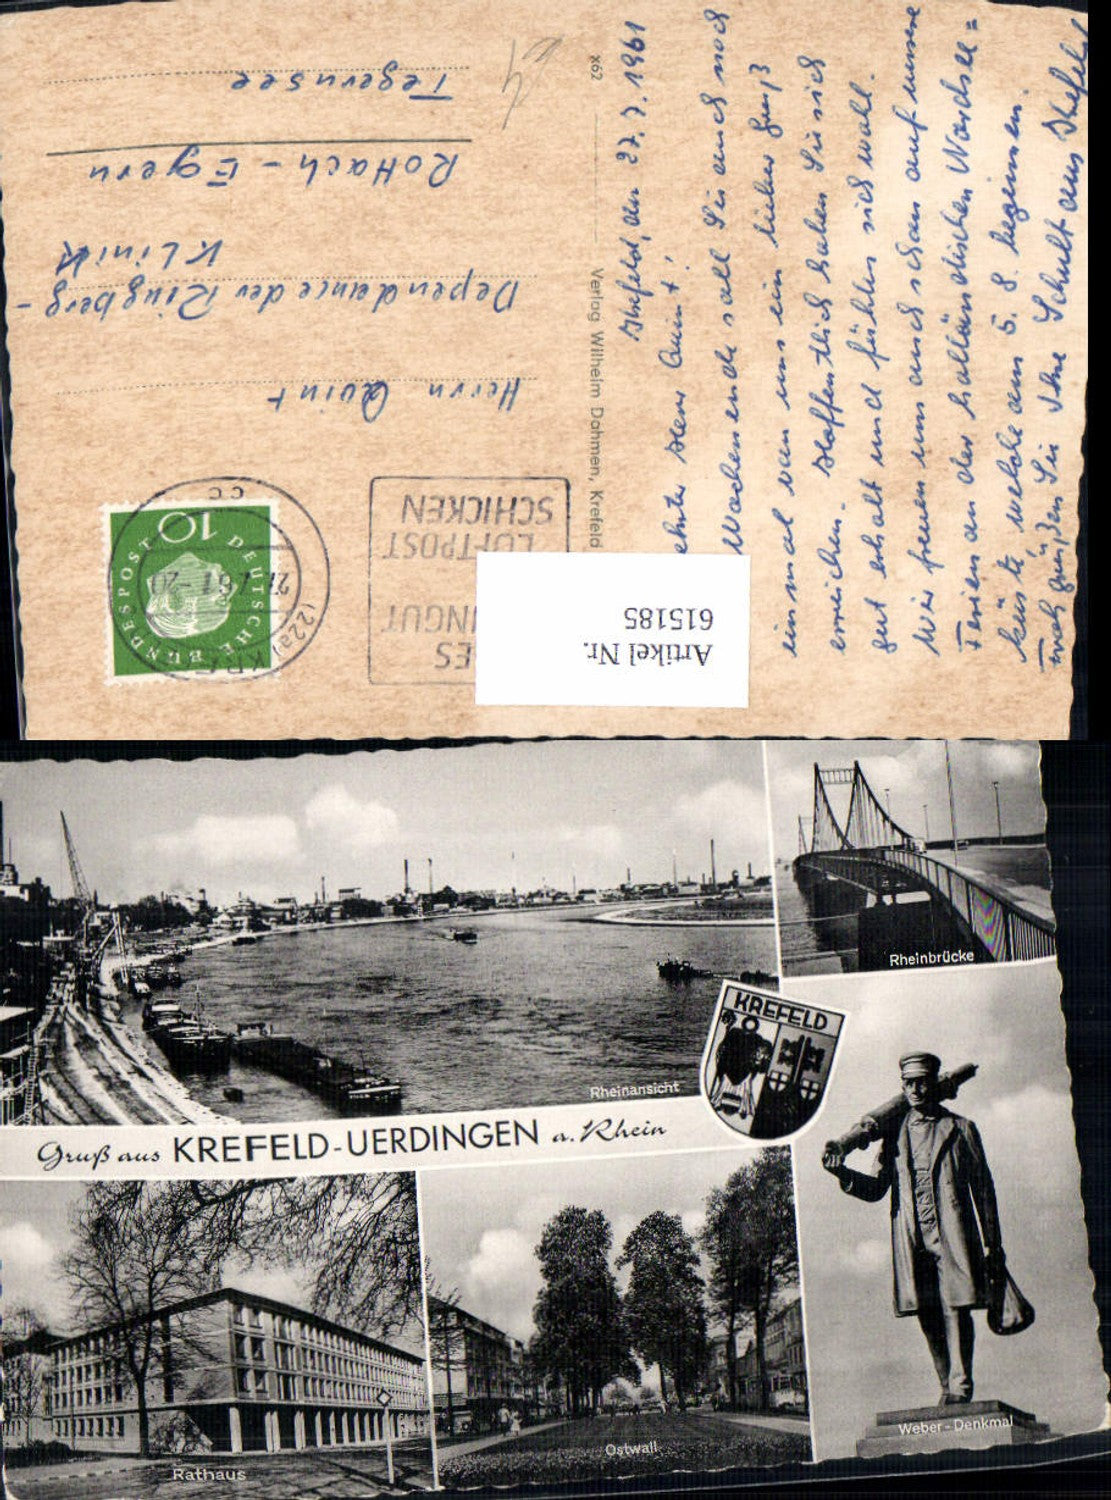 Krefeld, den 27. 7. 1961
Herr Quint!
Wochenende soll Sie auch noch
einmal von uns ein lieber Gruß
erreichen. Hoffentlich haben Sie sich
gut erholt und fühlen sich wohl.
Wir freuen uns auch schon auf unsere
Ferien an der holländischen Nordsee=
küste, welche am 5. 8. beginnen.
grüßen Sie Ihre Schult aus Krefeld
X62
Verlag Wilhelm Dahmen, Krefeld
LUFTPOST
SCHICKEN
DEUTSCHE BUNDESPOST
10
Herrn Quint
Dependance der Ringberg-
Klinik
Rottach-Egern
Tegernsee
Artikel Nr.
615185
Rheinbrücke
KREFELD
Rheinansicht
Gruß aus KREFELD-UERDINGEN a. Rhein
Rathaus
Ostwall
Weber-Denkmal